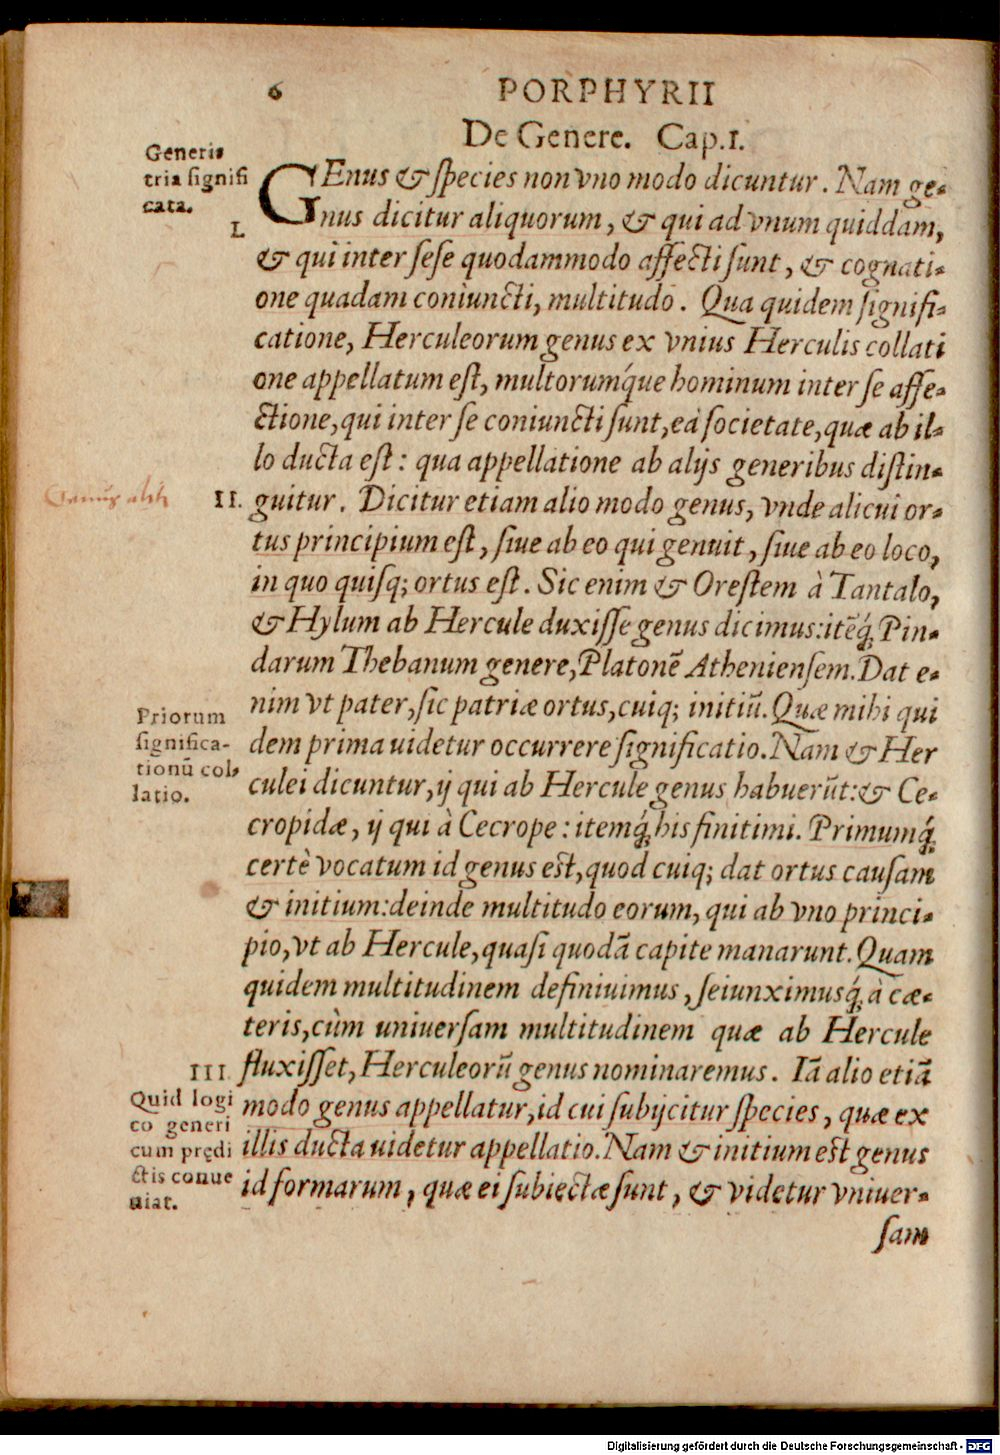 6 PORPHYRII
De Genere. Cap. I.
Generis
tria signifi
cata.
I.
GEnus & species non vno modo dicuntur. Nam ge-
nus dicitur aliquorum, & qui ad vnum quiddam,
& qui inter sese quodammodo affecti sunt, & cognati-
one quadam coniuncti, multitudo. Qua quidem signifi-
catione, Herculeorum genus ex vnius Herculis collati
one appellatum est, multorumq́ue hominum inter se affe-
ctione, qui inter se coniuncti sunt, eà societate, quæ ab il-
lo ducta est: qua appellatione ab alijs generibus distin-
II. guitur. Dicitur etiam alio modo genus, vnde alicui or-
tus principium est, siue ab eo qui genuit, siue ab eo loco,
in quo quisq; ortus est. Sic enim & Orestem à Tantalo,
& Hylum ab Hercule duxisse genus dicimus: itẽq́; Pin-
darum Thebanum genere, Platonẽ Atheniensem. Dat e-
nim vt pater, sic patriæ ortus, cuiq; initiũ. Quæ mihi qui
dem prima uidetur occurrere significatio. Nam & Her
culei dicuntur, ij qui ab Hercule genus habuerũt: & Ce-
cropidæ, ij qui à Cecrope: itemq́; his finitimi. Primumq́;
certè vocatum id genus est, quod cuiq; dat ortus causam
& initium: deinde multitudo eorum, qui ab vno princi-
pio, vt ab Hercule, quasi quodã capite manarunt. Quam
quidem multitudinem definiuimus, seiunximusq́; à cæ-
teris, cùm uniuersam multitudinem quæ ab Hercule
fluxisset, Herculeorũ genus nominaremus. Iã alio etiã
modo genus appellatur, id cui subijcitur species, quæ ex
illis ducta uidetur appellatio. Nam & initium est genus
id formarum, quæ ei subiectæ sunt, & videtur vniuer-
sam
Priorum
significa-
tionũ col-
latio.
III.
Quid logi
co generi
cum prędi
ctis conue
niat.
Digitalisierung gefördert durch die Deutsche Forschungsgemeinschaft - DFG